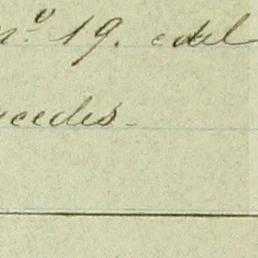 nº 19. edel
cedes